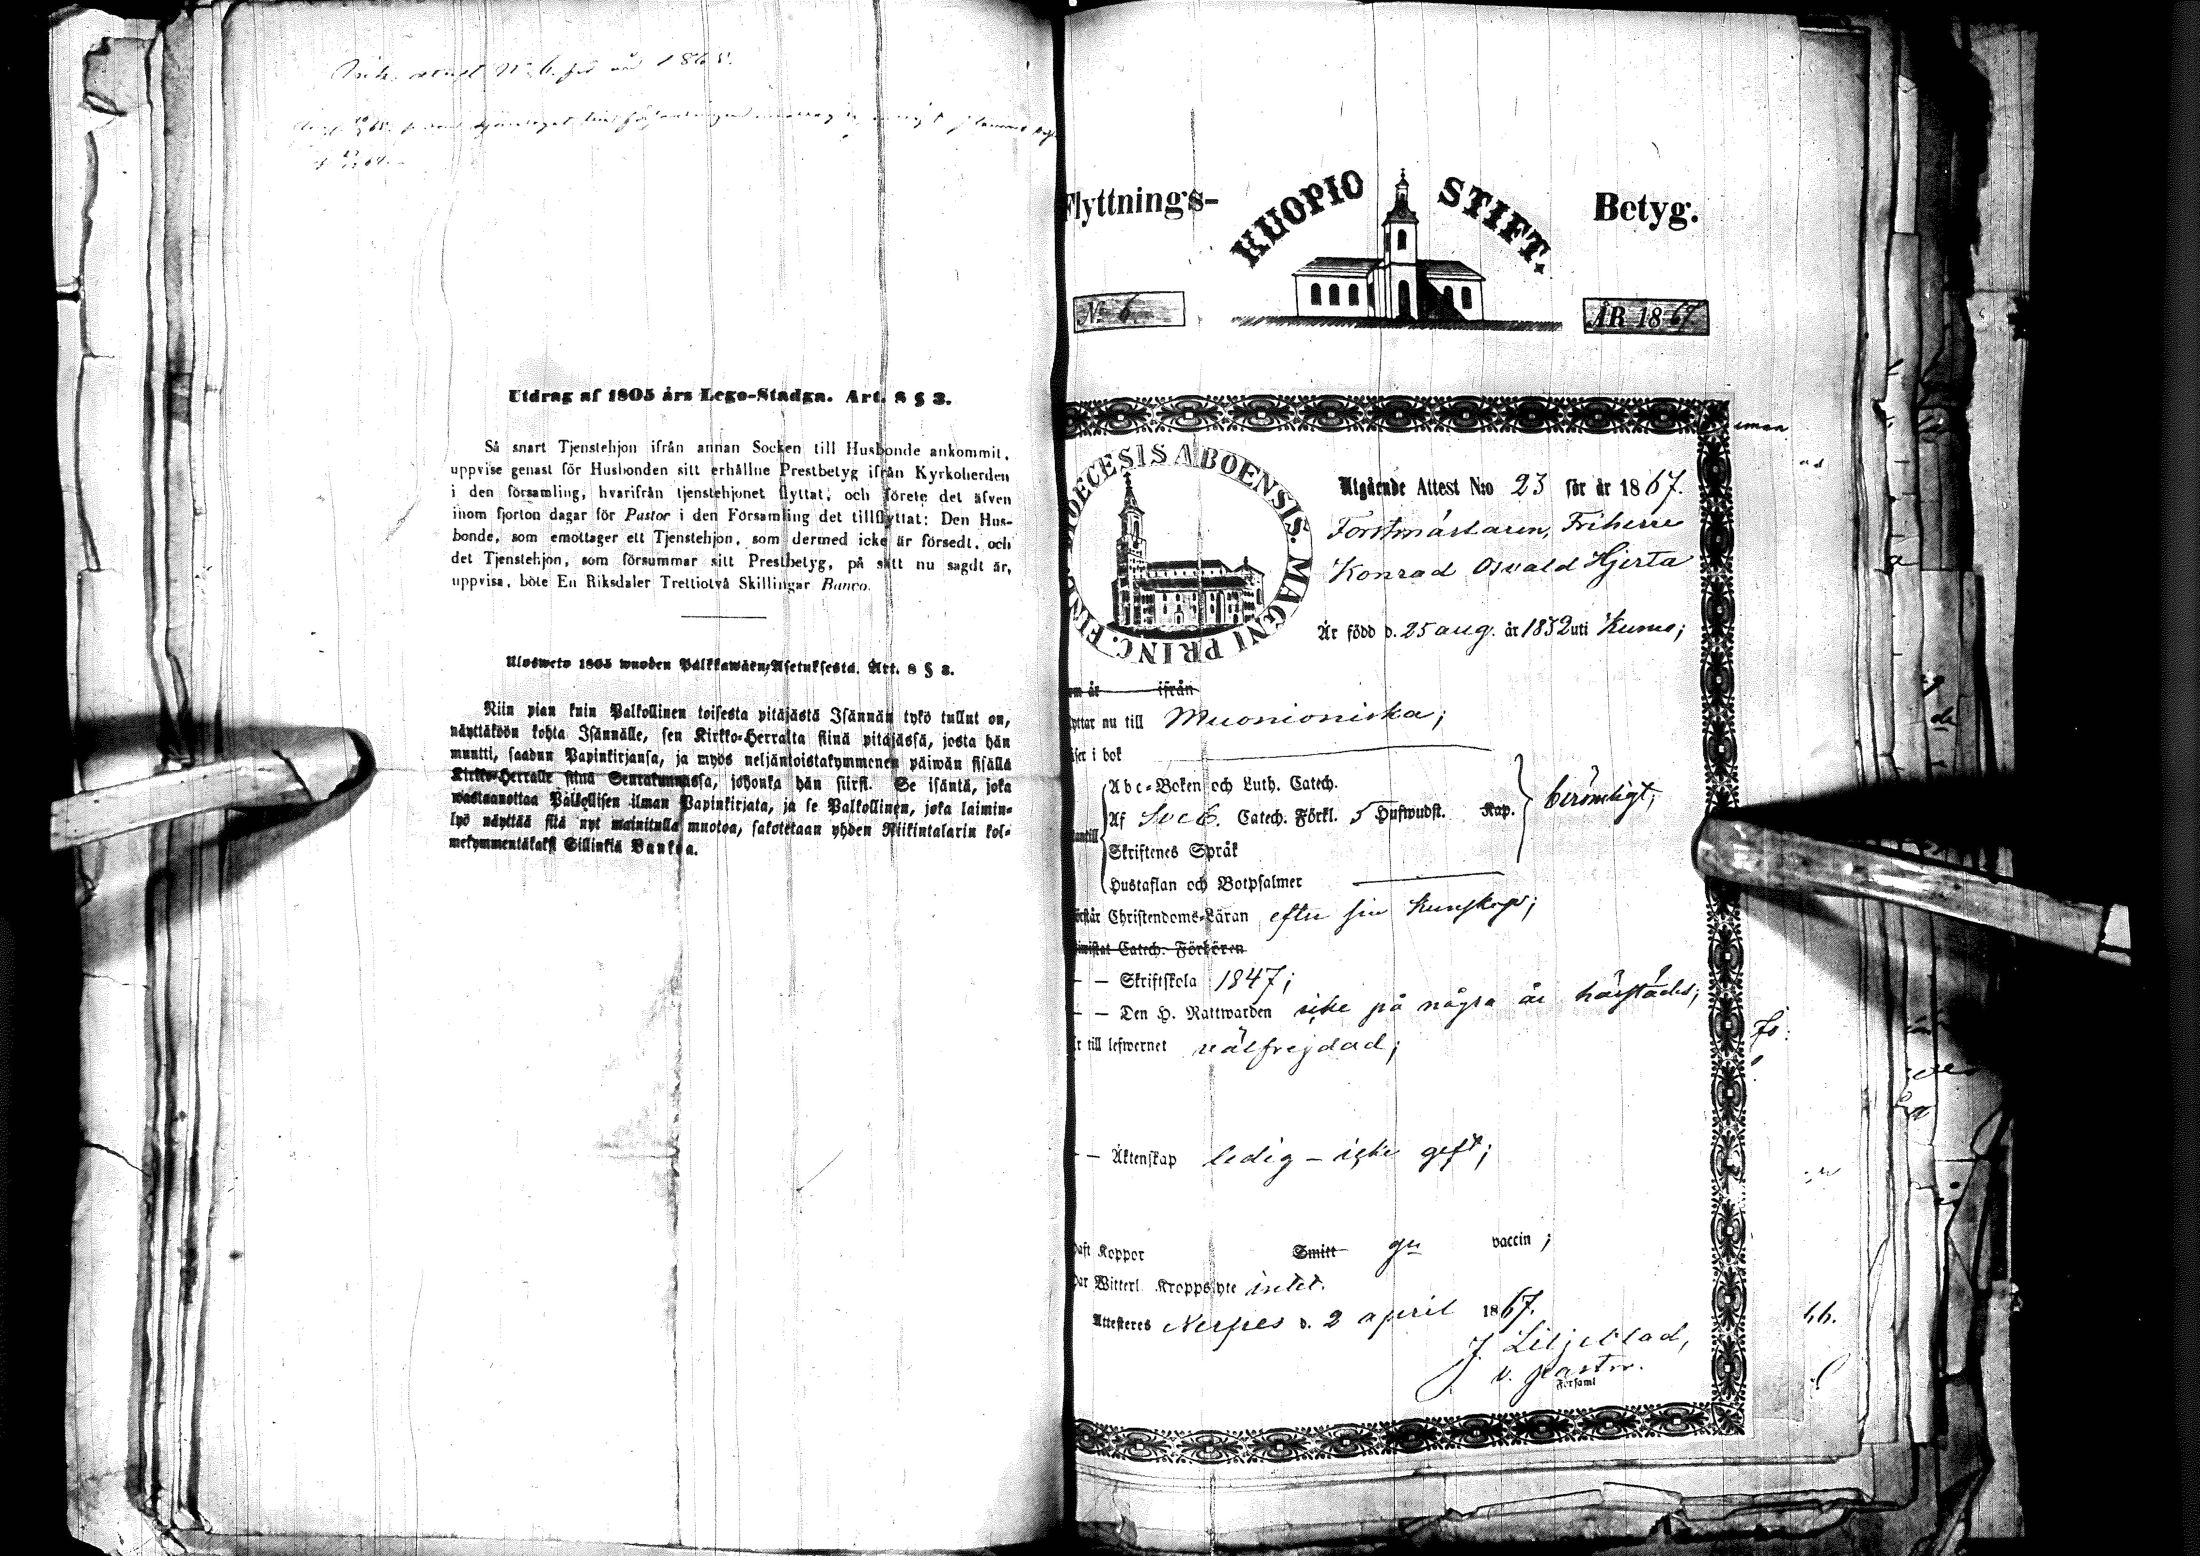 för år 1868.
Utdrag af 1805 års Lego-Stadga. Art. 8 § 3.
Så snart Tjenstehjon ifrån annan Socken till Husbonde ankommit,
uppvise genast för Husbonden sitt erhållne Prestbetyg ifrån Kyrkoherden
i den församling, hvarifrån tjenstehjonet flyttat, och förete det äfven
inom fjorton dagar för Pastor i den Församling det tillflyttat: Den Hus-
bonde, som emottager ett Tjenstehjon, som dermed icke är försedt, och
det Tjenstehjon, som försummar sitt Prestbetyg, på sätt nu sagdt är,
uppvisa, böte En Riksdaler Trettiotvå Skillingar Banco.
Ulosweto 1805 wuoden Palkkawäen-Asetuksesta. Art. 8 § 3.
Niin pian kuin Palkollinen toisesta pitäjästä Isännän tykö tullut on,
näyttäköön kohta Isännälle, sen Kirkko-Herralta siinä pitäjässä, josta hän
muutti, saadun Papinkirjansa, ja myös neljäntoistakymmenen päiwän sisällä
Kirkko-Herralle siinä Seurakunnassa, johonka hän siirsi. Se isäntä, joka
wastaanottaa Palkollisen ilman Papinkirjata, ja se Palkollinen, joka laimin-
lyö näyttää sitä nyt mainitulla muotoa, sakotetaan yhden Riikintalarin kol-
mekymmentäkaksi Sillinkiä Bankoa.
Flyttnings- KUOPIO STIFT. Betyg.
No 6. ÅR 1867
DIOECESIS ABOENSIS. MAGNI PRINC. FINL.
Utgående Attest N:o 23 för år 1867.
Forstmästaren, Friherre
Konrad Osvald Hjerta
Är född d. 25 aug. år 1832 uti Kumo;
om år ifrån
yttar nu till Muonioniska;
äser i bok
Abc-Boken och Luth. Catech.
Af Sveb. Catech. Förkl. 5 Hufwudst. Kap. berömligt;
antill
Skriftenes Språk
Hustaflan och Botpsalmer
örstår Christendoms-Läran efter sin kunskap;
iwistat Catech. Förhören
– – Skriftskola 1847;
– – Den H. Nattwarden icke på några år härstädes;
är till lefwernet välfrejdad;
– – Äktenskap ledig – icke gift;
haft Koppor Smitt gn vaccin;
har Witterl. Kroppslyte intet.
Attesteres Nerpes d. 2 april 1867.
J. Liljeblad,
v. pastor.
Församl